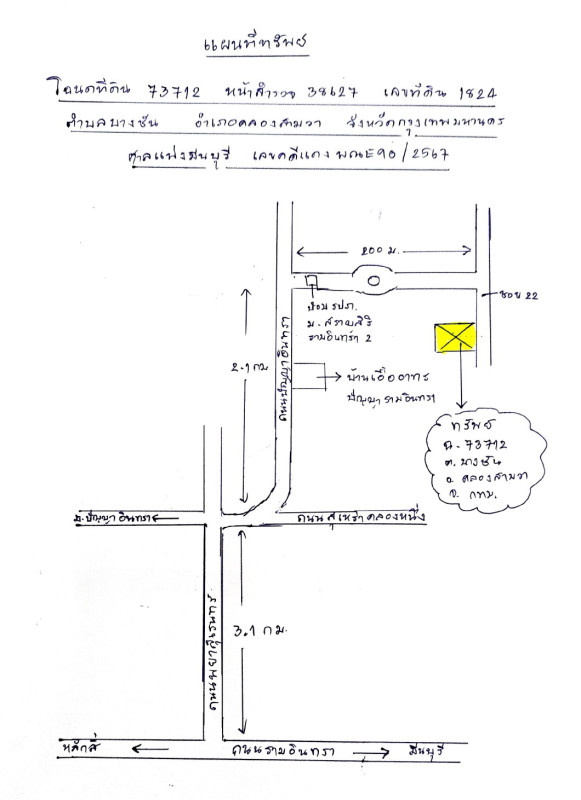 แผนที่ทรัพย์
โฉนดที่ดิน 73712 หน้าสำรวจ 38627 เลขที่ดิน 1824
ตำบลบางชัน อำเภอคลองสามวา จังหวัดกรุงเทพมหานคร
ศาลแพ่งมีนบุรี เลขคดีแดง ผบE90/2567
200 ม.
ซอย 22
ป้อม รปภ.
ม. สราญสิริ
รามอินทรา 2
ถนนปัญญาอินทรา
2.1 กม.
บ้านเอื้ออาทร
ปัญญา รามอินทรา
ทรัพย์
ฉ. 73712
ต. บางชัน
อ. คลองสามวา
จ. กทม.
ม. ปัญญาอินทรา
ถนนสุเหร่าคลองหนึ่ง
ถนนพระยาสุเรนทร์
3.1 กม.
หลักสี่
ถนนรามอินทรา
มีนบุรี